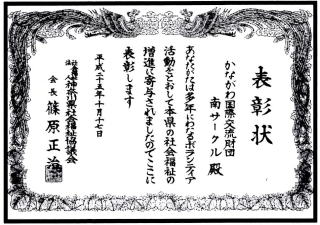 表彰状
かながわ国際交流財団
南サークル 殿
あなたがたは多年にわたるボランティア
活動をとおして本県の社会福祉の
増進に寄与されましたのでここに
表彰します
平成二十五年十月十七日
社会福祉法人神奈川県社会福祉協議会
会長 篠原正治